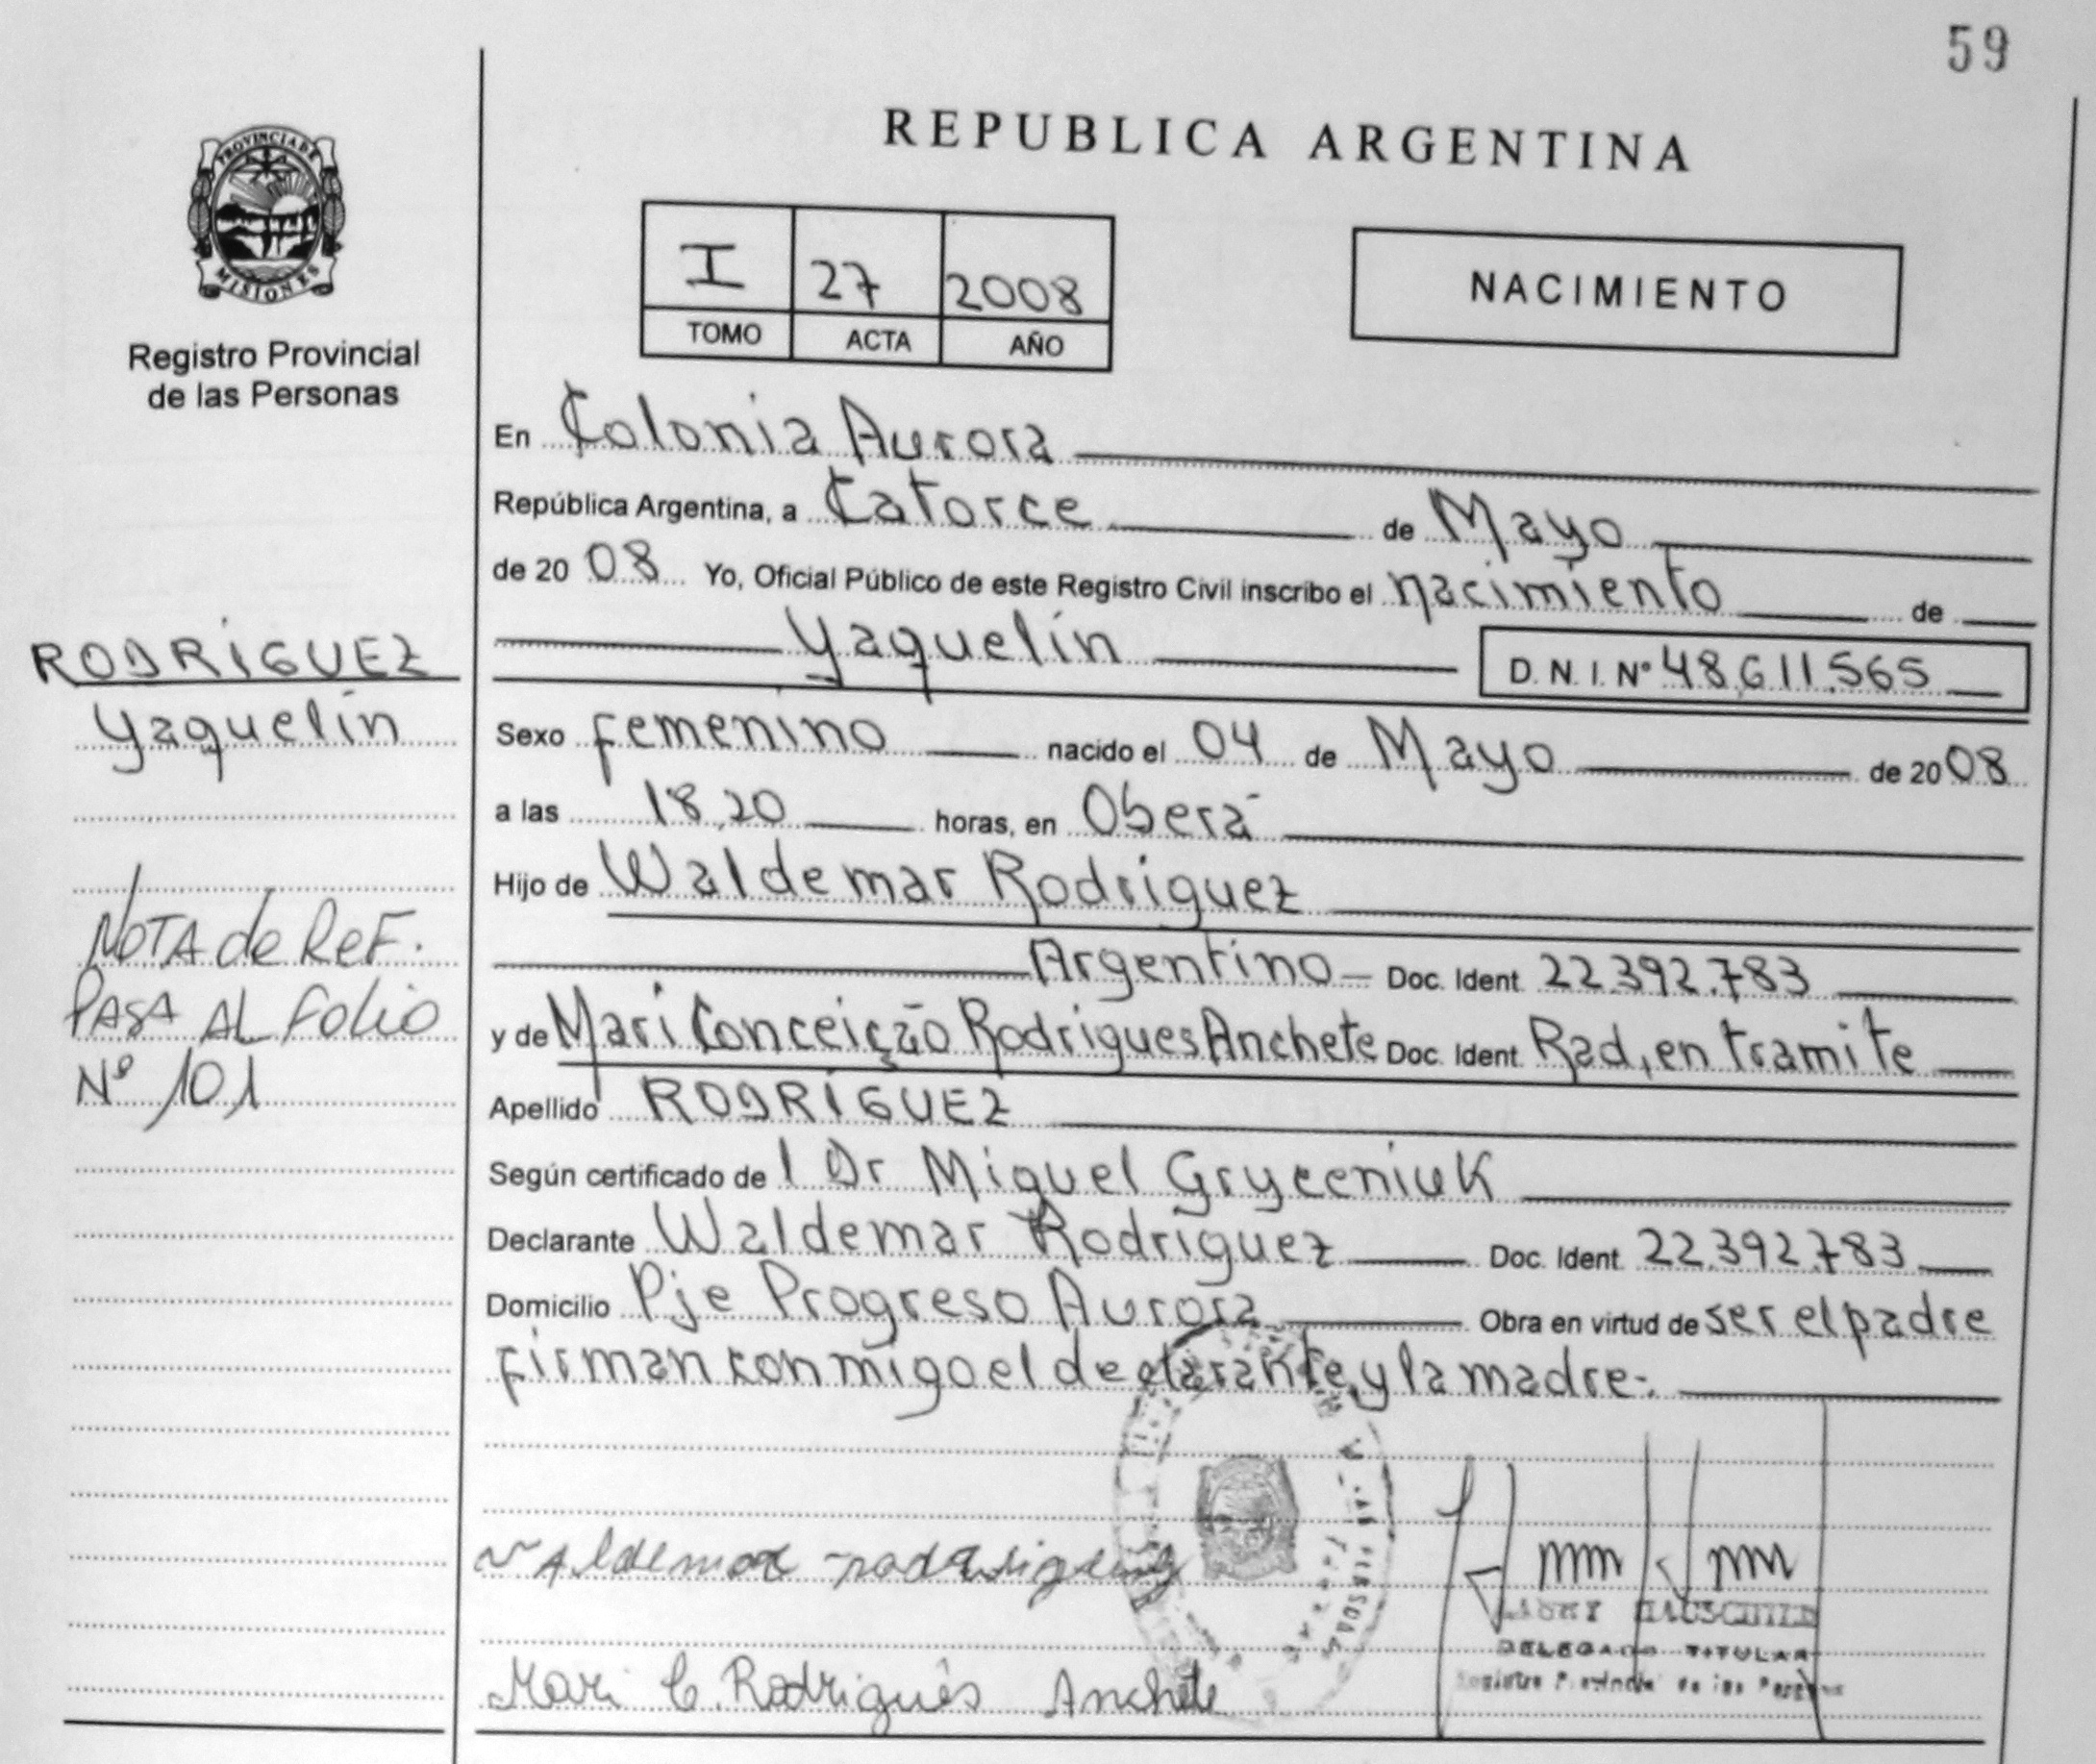 59
PROVINCIA DE
MISIONES
Registro Provincial
de las Personas
REPUBLICA ARGENTINA
I 27 2008
TOMO ACTA AÑO
NACIMIENTO
En Colonia Aurora
República Argentina, a Catorce de Mayo
de 20 08 Yo, Oficial Público de este Registro Civil inscribo el nacimiento de
Yaquelín
D. N. I. Nº 48.611.565
RODRÍGUEZ
Yaquelín
Sexo femenino nacido el 04 de Mayo de 20 08
a las 18,20 horas, en Oberá
Hijo de Waldemar Rodriguez
Argentino Doc. Ident. 22.392.783
y de Mari Conceição Rodrigues Anchete Doc. Ident. Rad, en tramite
Apellido RODRÍGUEZ
NOTA de ReF.
PASA AL Folio
Nº 101
Según certificado de l Dr Miguel Gryceniuk
Declarante Waldemar Rodriguez Doc. Ident. 22.392.783
Domicilio Pje Progreso Aurora Obra en virtud de ser el padre
firman conmigo el declarante y la madre.
Mari C. Rodrigues Anchete
DELEGADO TITULAR
Registro Provincial de las Personas